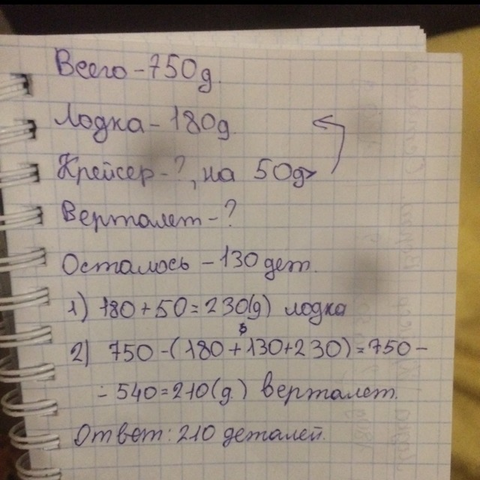 Всего-750д.
Лодка-180д
Крейсер-?, на 50д>
Верталет-?
Осталось -130 дет.
1) 180+50=230(д) лодка
2) 750-(180+130+230)=750-
-540=210(д.) верталет.
Ответ: 210 деталей.